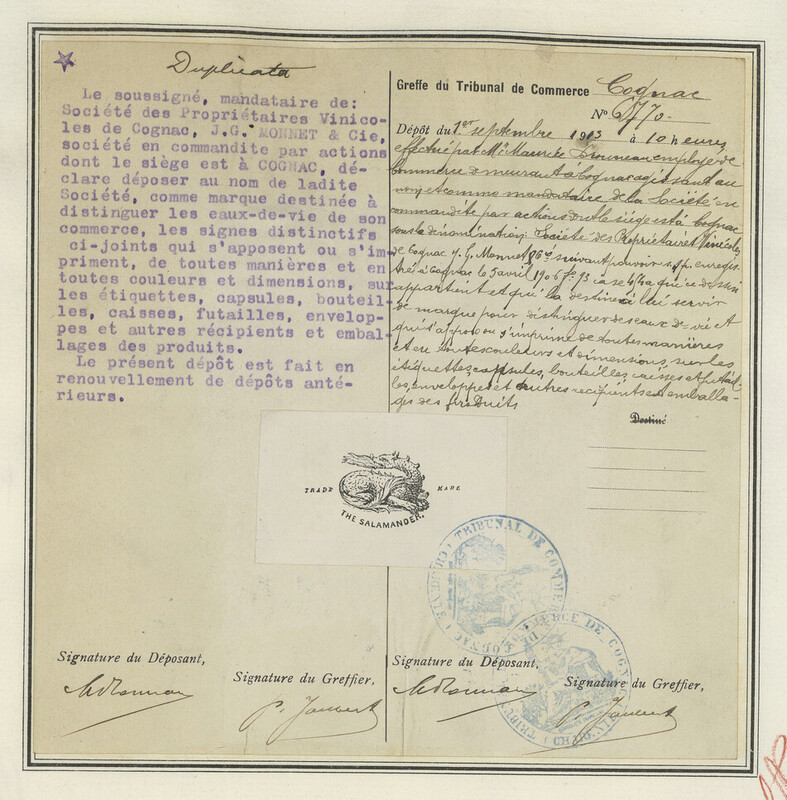 Duplicata
Le soussigné, mandataire de:
Société des Propriétaires Vinico-
les de Cognac, J.G. MONNET & Cie,
société en commandite par actions
dont le siège est à COGNAC, dé-
clare déposer au nom de ladite
Société, comme marque destinée à
distinguer les eaux-de-vie de son
commerce, les signes distinctifs
ci-joints qui s'apposent ou s'im-
priment, de toutes manières et en
toutes couleurs et dimensions, sur
les étiquettes, capsules, bouteil-
les, caisses, futailles, envelop-
pes et autres récipients et embal-
lages des produits.
Le présent dépôt est fait en
renouvellement de dépôts anté-
rieurs.
Greffe du Tribunal de Commerce Cognac
N° 5770.
Dépôt du 1er septembre 1913 à 10 heures
effectué par Mr Maurice employé de
commerce demeurant à Cognac agissant au
nom et comme mandataire de la Société en
commandite par actions dont le siège est à Cognac
sous la dénomination: Société des Propriétaires Vinicoles
de Cognac J. G. Monnet & Co suivant pouvoir s.s.p. enregis-
tré à Cognac le 5 avril 1906 fo 93 case 474 que ce dessin
appartient et qu'il la destine à lui servir
de marque pour distinguer des eaux de vie et
qui s'appose ou s'imprime de toutes manières
et en toutes couleurs et dimensions, sur les
étiquettes, capsules, bouteilles, caisses et futail-
les, enveloppes et autres récipients et emballa-
ges des produits
Destiné
TRADE MARK
THE SALAMANDER.
TRIBUNAL DE COMMERCE
COGNAC
TRIBUNAL DE COMMERCE DE COGNAC
Signature du Déposant,
Signature du Greffier,
P. Jaubert
Signature du Déposant,
Signature du Greffier,
P. Jaubert